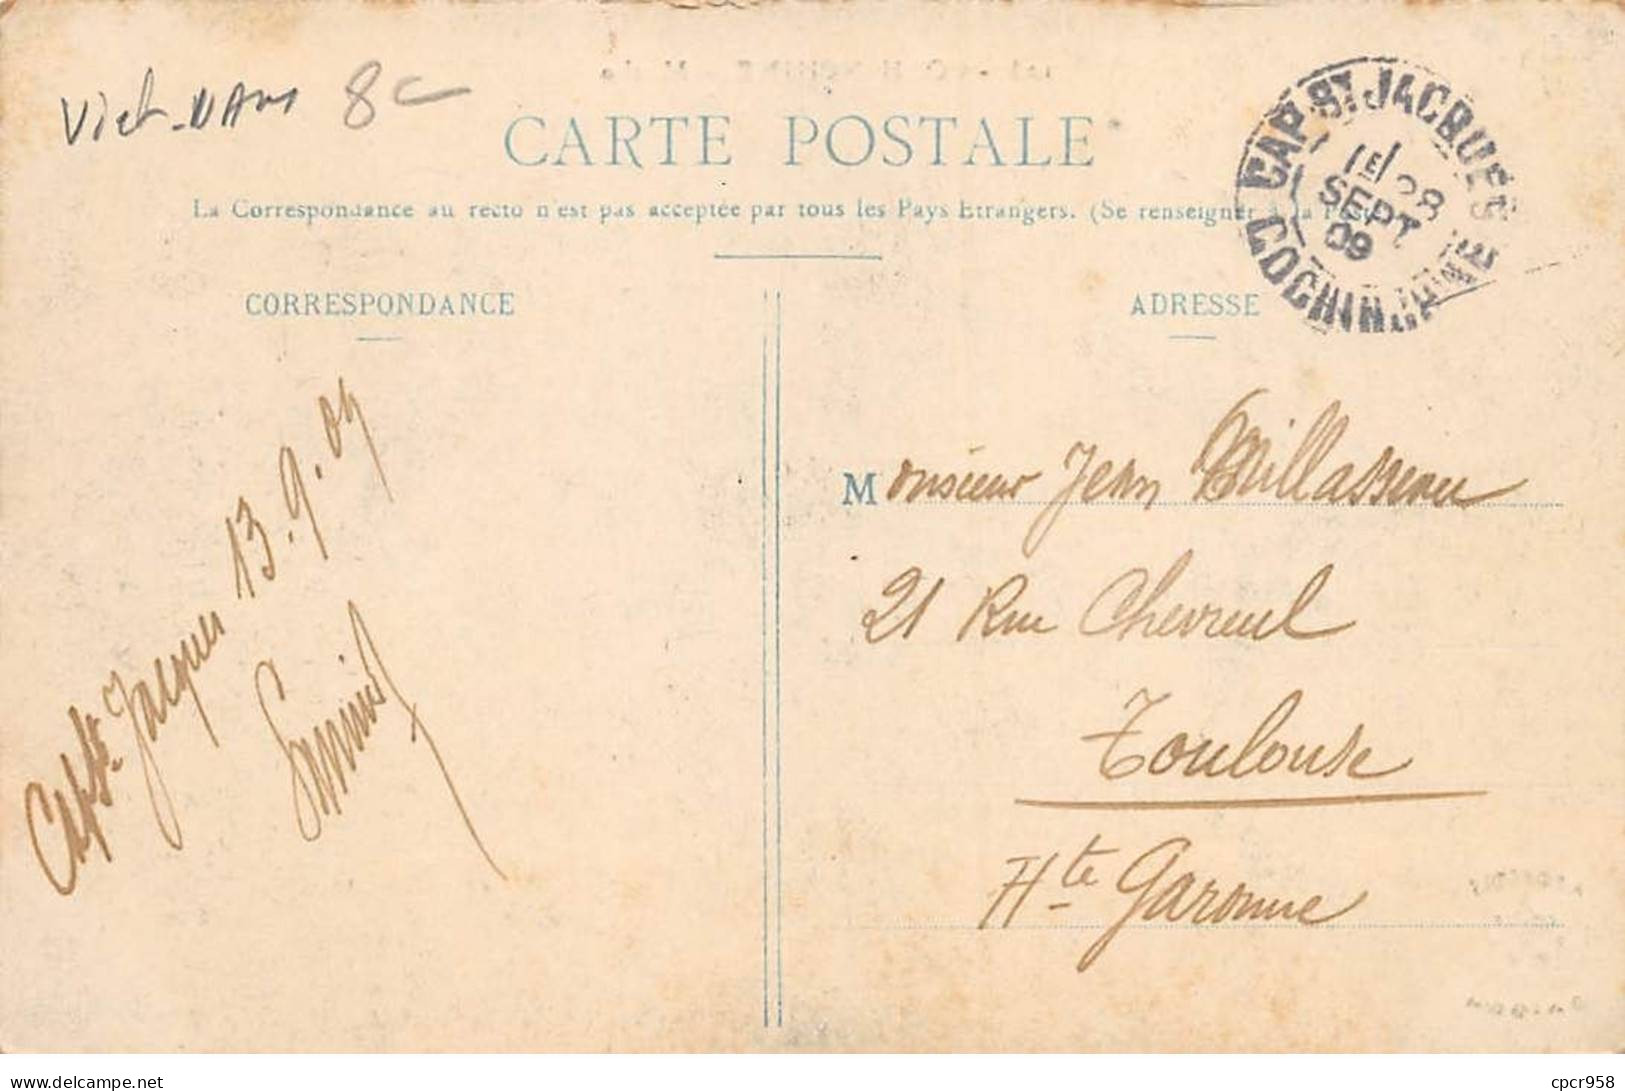 Viet-NAM 8c
CARTE POSTALE
La Correspondance au recto n'est pas acceptée par tous les Pays Etrangers. (Se renseigner à la Poste
CAP ST JACQUES
1E/ 28
SEPT
09
COCHINCHINE
CORRESPONDANCE
ADRESSE
Cap St. Jacques 13.9.09
Monsieur Jean Millasseau
21 Rue Chevreul
Toulouse
Hte Garonne
cpcr958